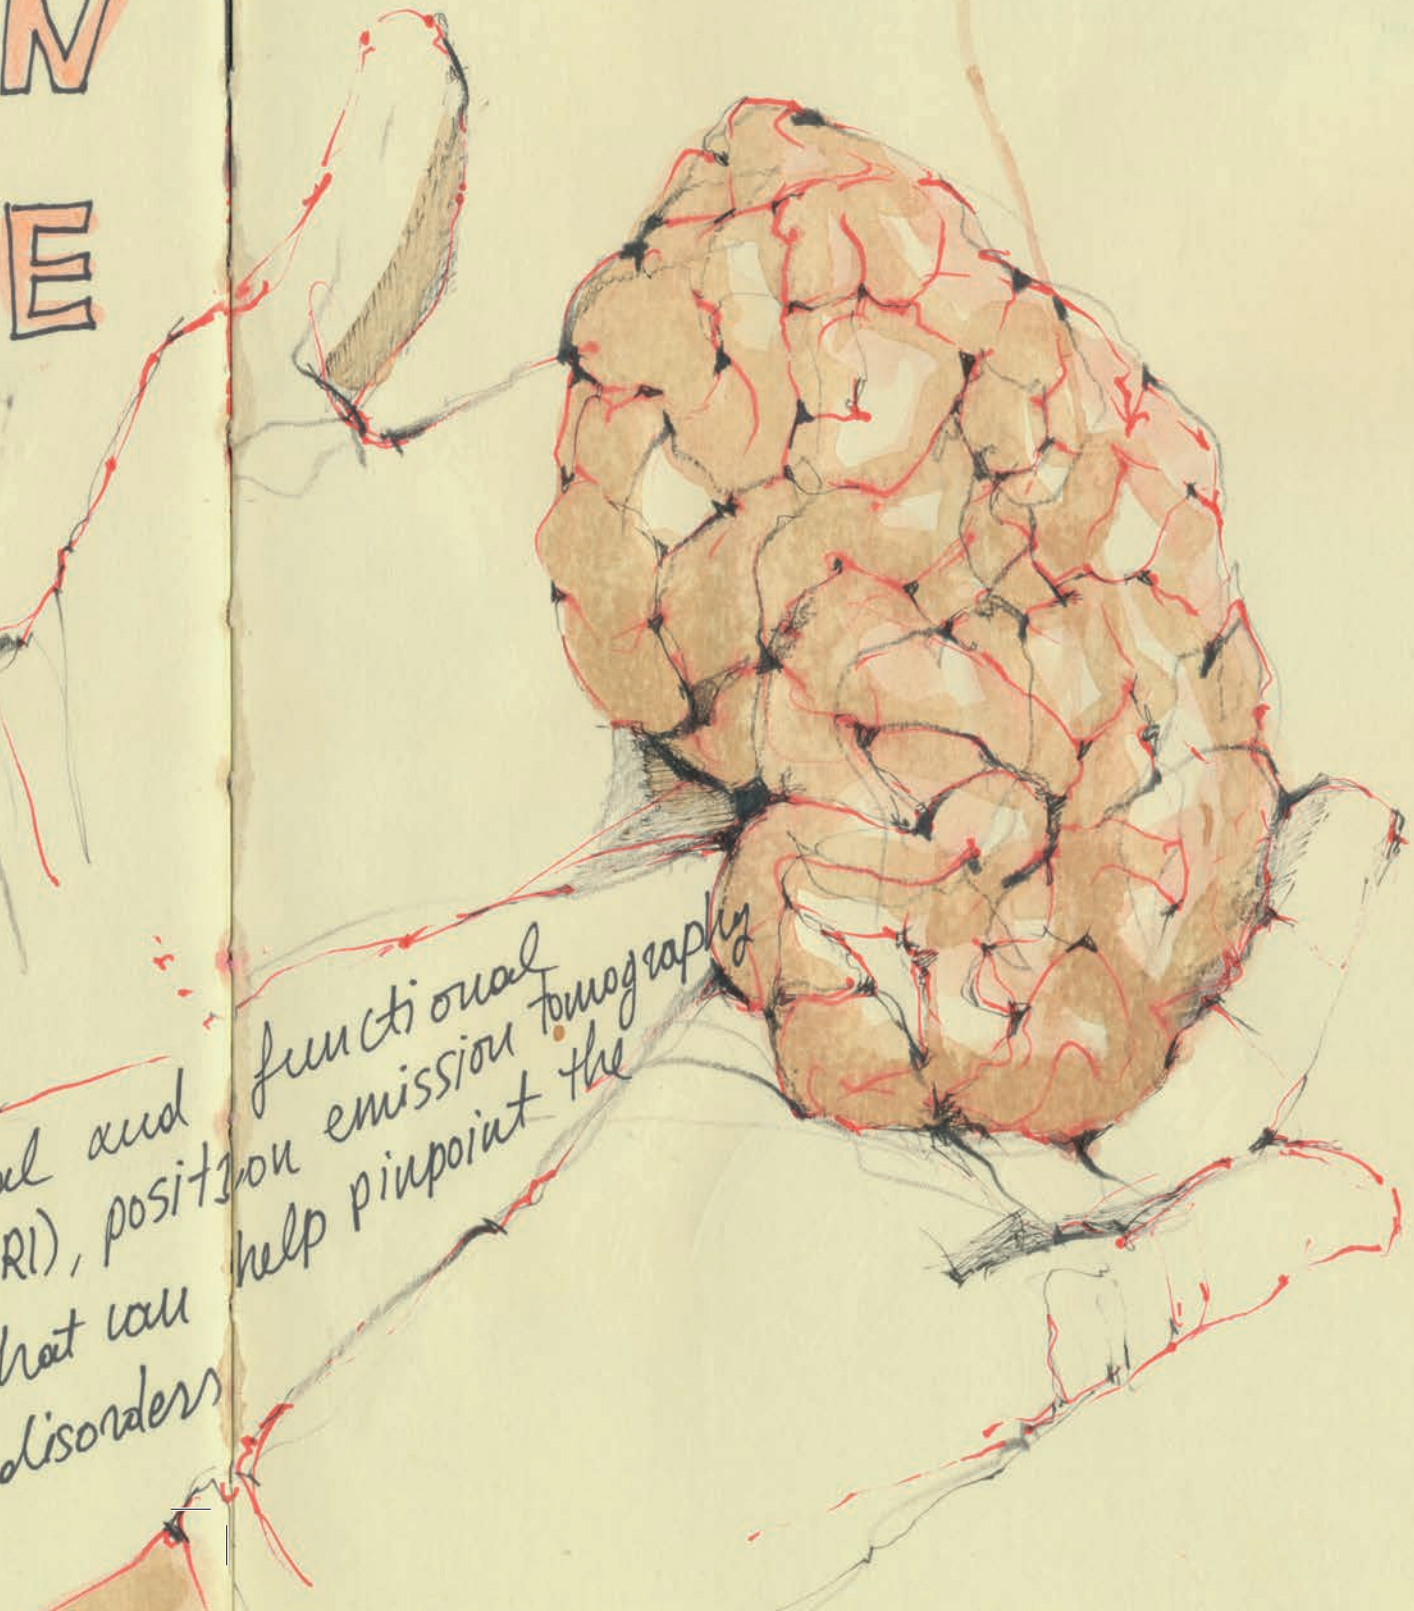 N
E
al and functional
RI), position emission tomography
hat can help pinpoint the
disorders